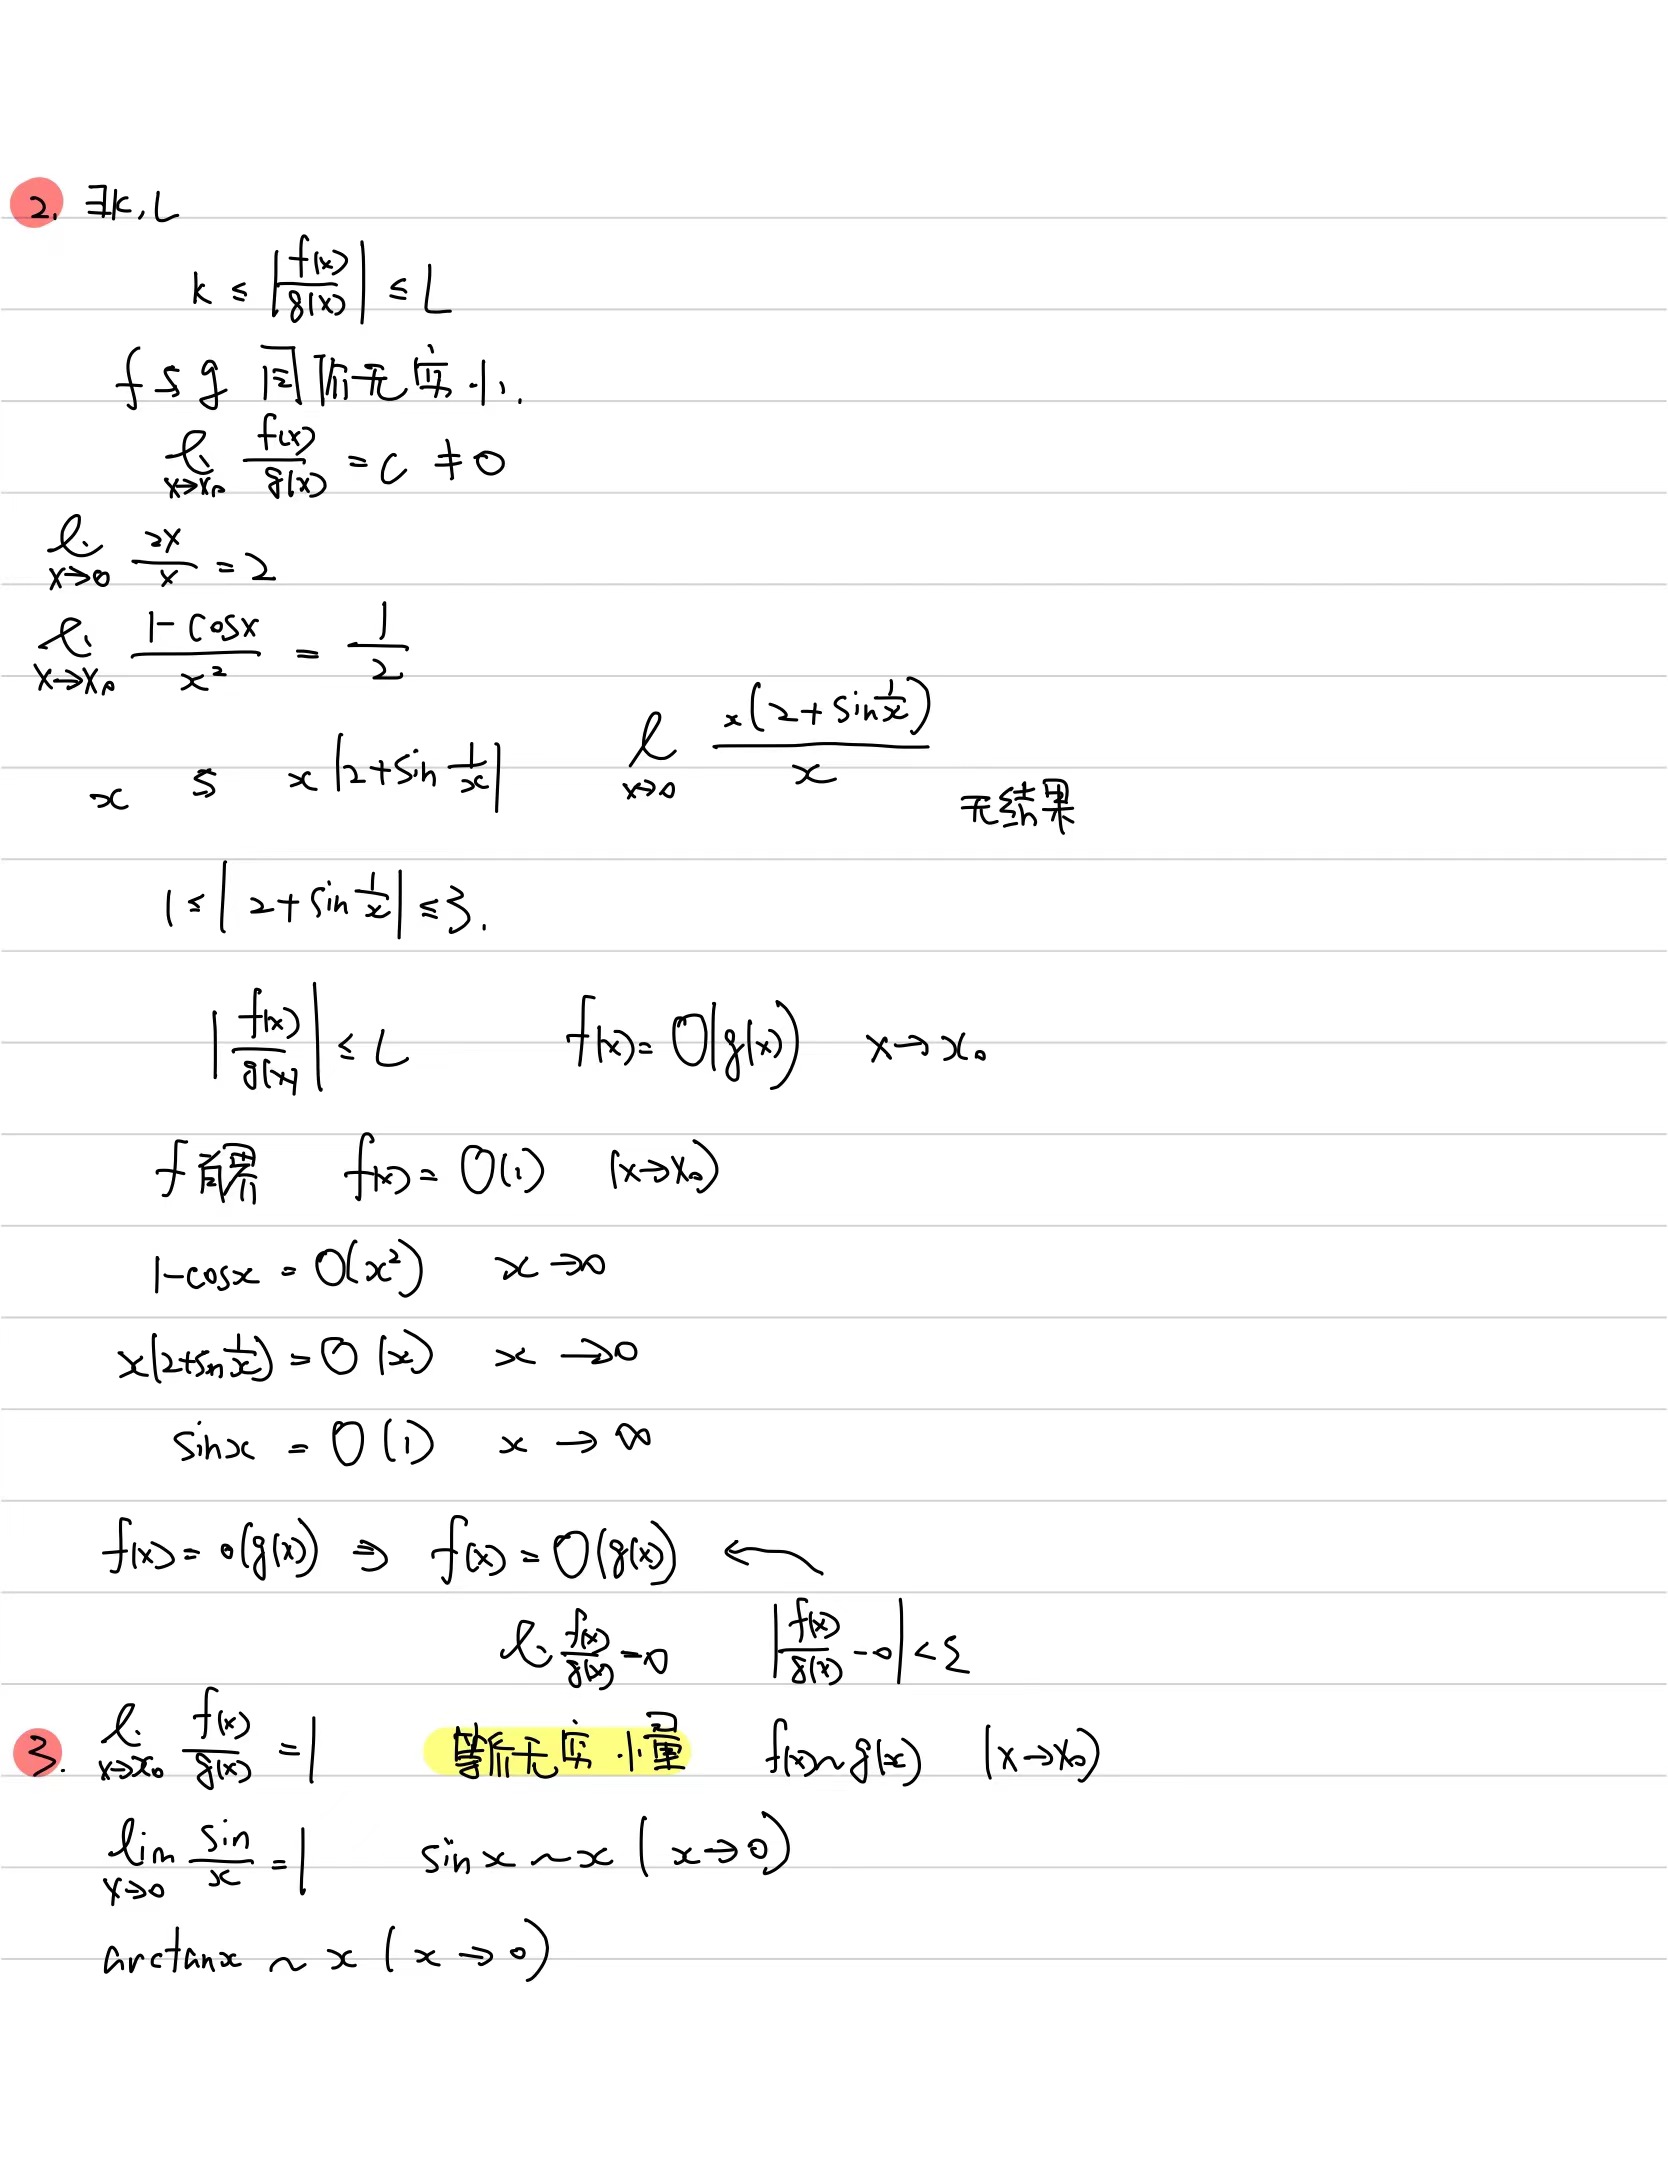 2. ∃k, L
k ≤ |f(x)/g(x)| ≤ L
f与g 同阶无穷小.
li x→x₀ f(x)/g(x) = c ≠ 0
li x→0 2x/x = 2
li x→x₀ (1-cosx)/x² = 1/2
x 与 x|2+sin 1/x| l x→0 x(2+sin 1/x)/x 无结果
1 ≤ |2+sin 1/x| ≤ 3.
|f(x)/g(x)| ≤ L f(x) = O(g(x)) x→x₀
f有界 f(x) = O(1) (x→x₀)
1-cosx = O(x²) x→0
x(2+sin 1/x) = O(x) x→0
sinx = O(1) x→∞
f(x) = o(g(x)) ⇒ f(x) = O(g(x)) ←
li f(x)/g(x) = 0 |f(x)/g(x) - 0| < ε
3. li x→x₀ f(x)/g(x) = 1 等价无穷小量 f(x)~g(x) (x→x₀)
lim x→0 sin/x = 1 sinx ~ x (x→0)
arctanx ~ x (x→0)